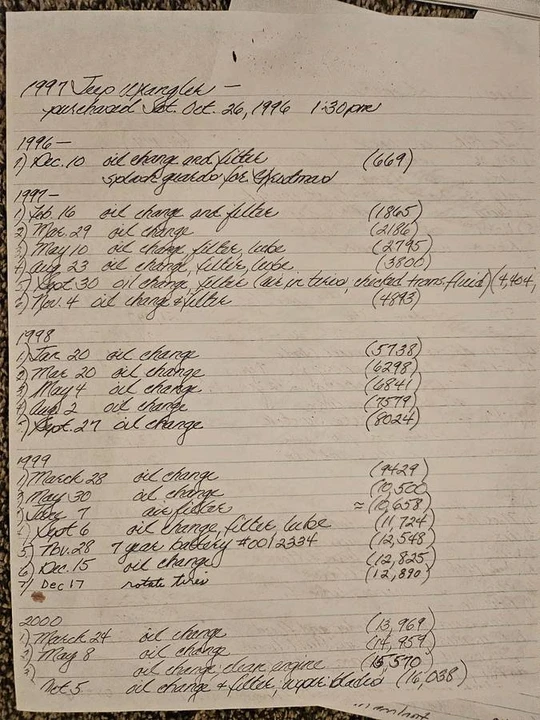 1997 Jeep Wrangler —
purchased Sat. Oct. 26, 1996 1:30pm
1996—
1) Dec. 10 oil change and filter (669)
splash guards for Christmas
1997—
1) Feb 16 oil change and filter (1865)
2) Mar. 29 oil change (2186)
3) May 10 oil change, filter, lube (2795)
4) Aug 23 oil change, filter, lube (3800)
5) Sept. 30 oil change, filter (air in tires, checked trans. fluid) (4,404,
6) Nov. 4 oil change & filter (4893)
1998
1) Jan 20 oil change (5738)
2) Mar 20 oil change (6298)
3) May 4 oil change (6841)
4) Aug 2 oil change (7579)
5) Sept. 27 oil change (8024)
1999
1) March 28 oil change (9429)
2) May 30 oil change (10,500)
3) June 7 air filter ≈ (10,658)
4) Sept 6 oil change, filter lube (11,724)
5) Nov. 28 7 year battery #0012334 (12,548)
6) Dec. 15 oil change (12,825)
7) Dec 17 rotate tires (12,890)
2000
1) March 24 oil change (13,969)
2) May 8 oil change (14,959)
3) oil change, clean engine (15,570)
Oct. 5 oil change & filter, wiper blades (16,038)